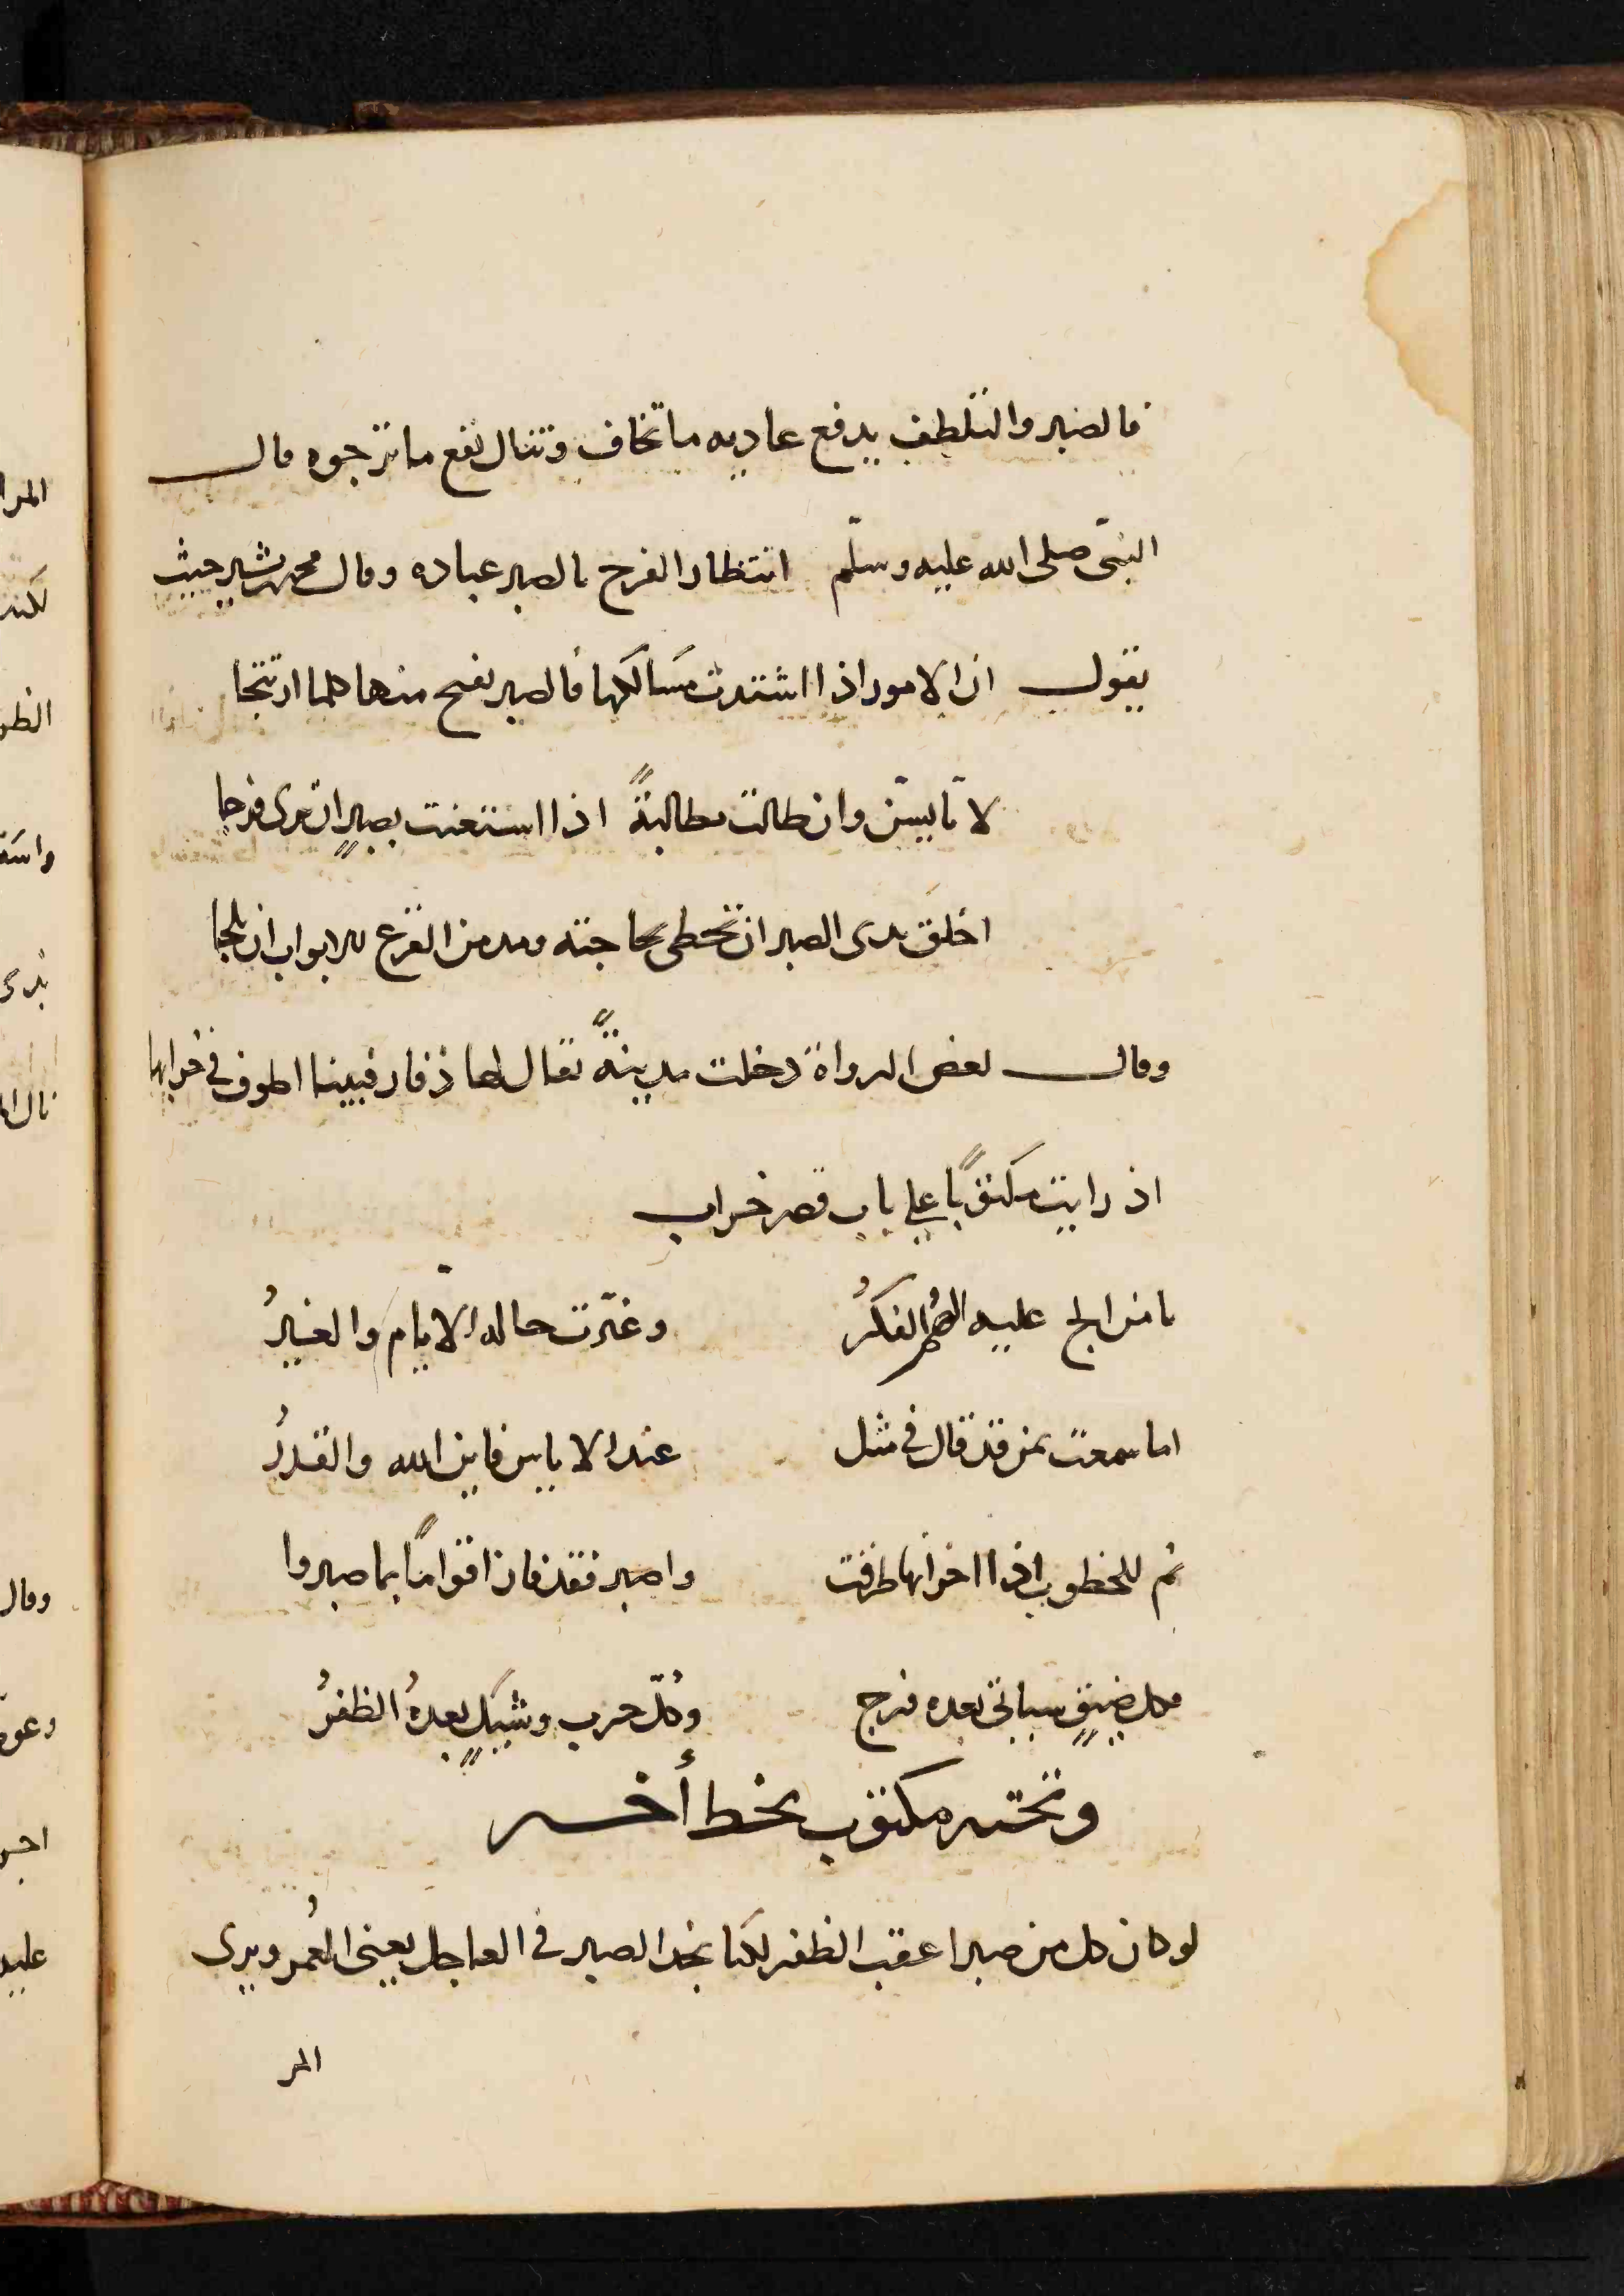 فالصبر والتلطف يدفع عاديه ما تخاف وتنال نفع ما ترجوه قال
النبي صلى الله عليه وسلّم انتظار الفرج بالصبر عباده وقال محمد بشير حيث
يقول ان الامور اذا اشتدت مسالكها فالصبر يفتح منها كلما ارتتجا
لا تأيسنّ وان طالت مطالبةً اذا استعنت بصبرٍ ان ترى فرجا
اخلق بذى الصبر ان تحظى بحاجته ومدمن القرع للابواب ان يلجا
وقال بعض الرواة دخلت مدينةً يقال لها ذفار فبينا اطوف في خرابها
اذ رايت مكتوبًا على باب قصر خراب
يا من الح عليه الهم والفكرُ وغيّرت حاله الايام والغيرُ
اما سمعت بمن قد قال في مثل عند الاياس فاين الله والقدرُ
نم للخطوب اذا احزانها طرقت واصبر فقد فاز اقوامًا بما صبروا
فكل ضيقٍ سياتي بعده فرج وكلّ حرب وشيكٍ بعدهُ الظفرُ
وتحته مكتوب بخط أخر
لو كان كل من صبر اعقب الظفر لكنا نجد الصبر في العاجل يفنى العُمر ويرى
المر
المرا
لكنه
وقال
عليه